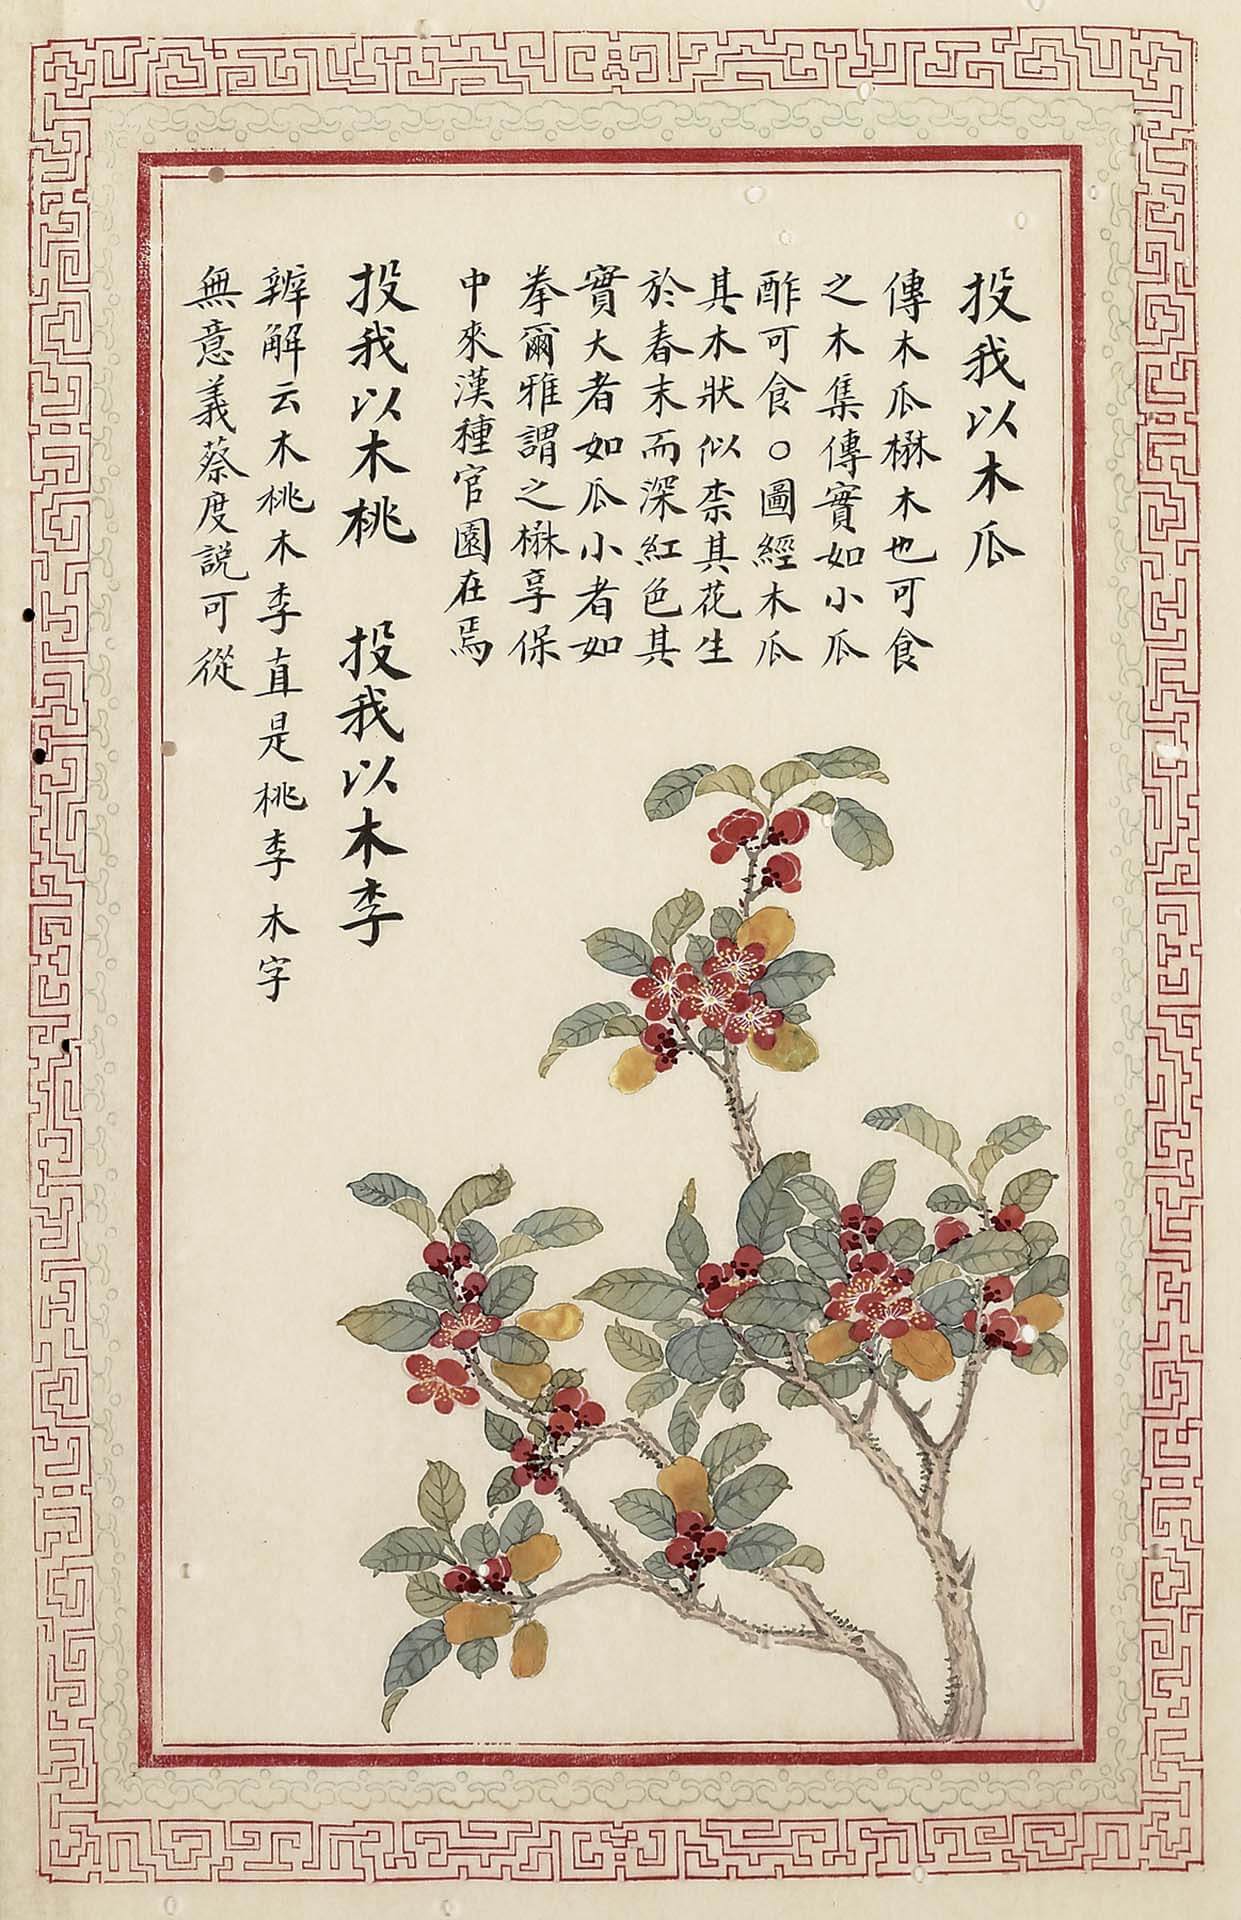 投我以木瓜
傳木瓜楙木也可食
之木集傳實如小瓜
酢可食○圖經木瓜
其木狀似柰其花生
於春末而深紅色其
實大者如瓜小者如
拳爾雅謂之楙享保
中來漢種官園在焉
投我以木桃　投我以木李
辨解云木桃木李直是桃李木字
無意義蔡度説可從